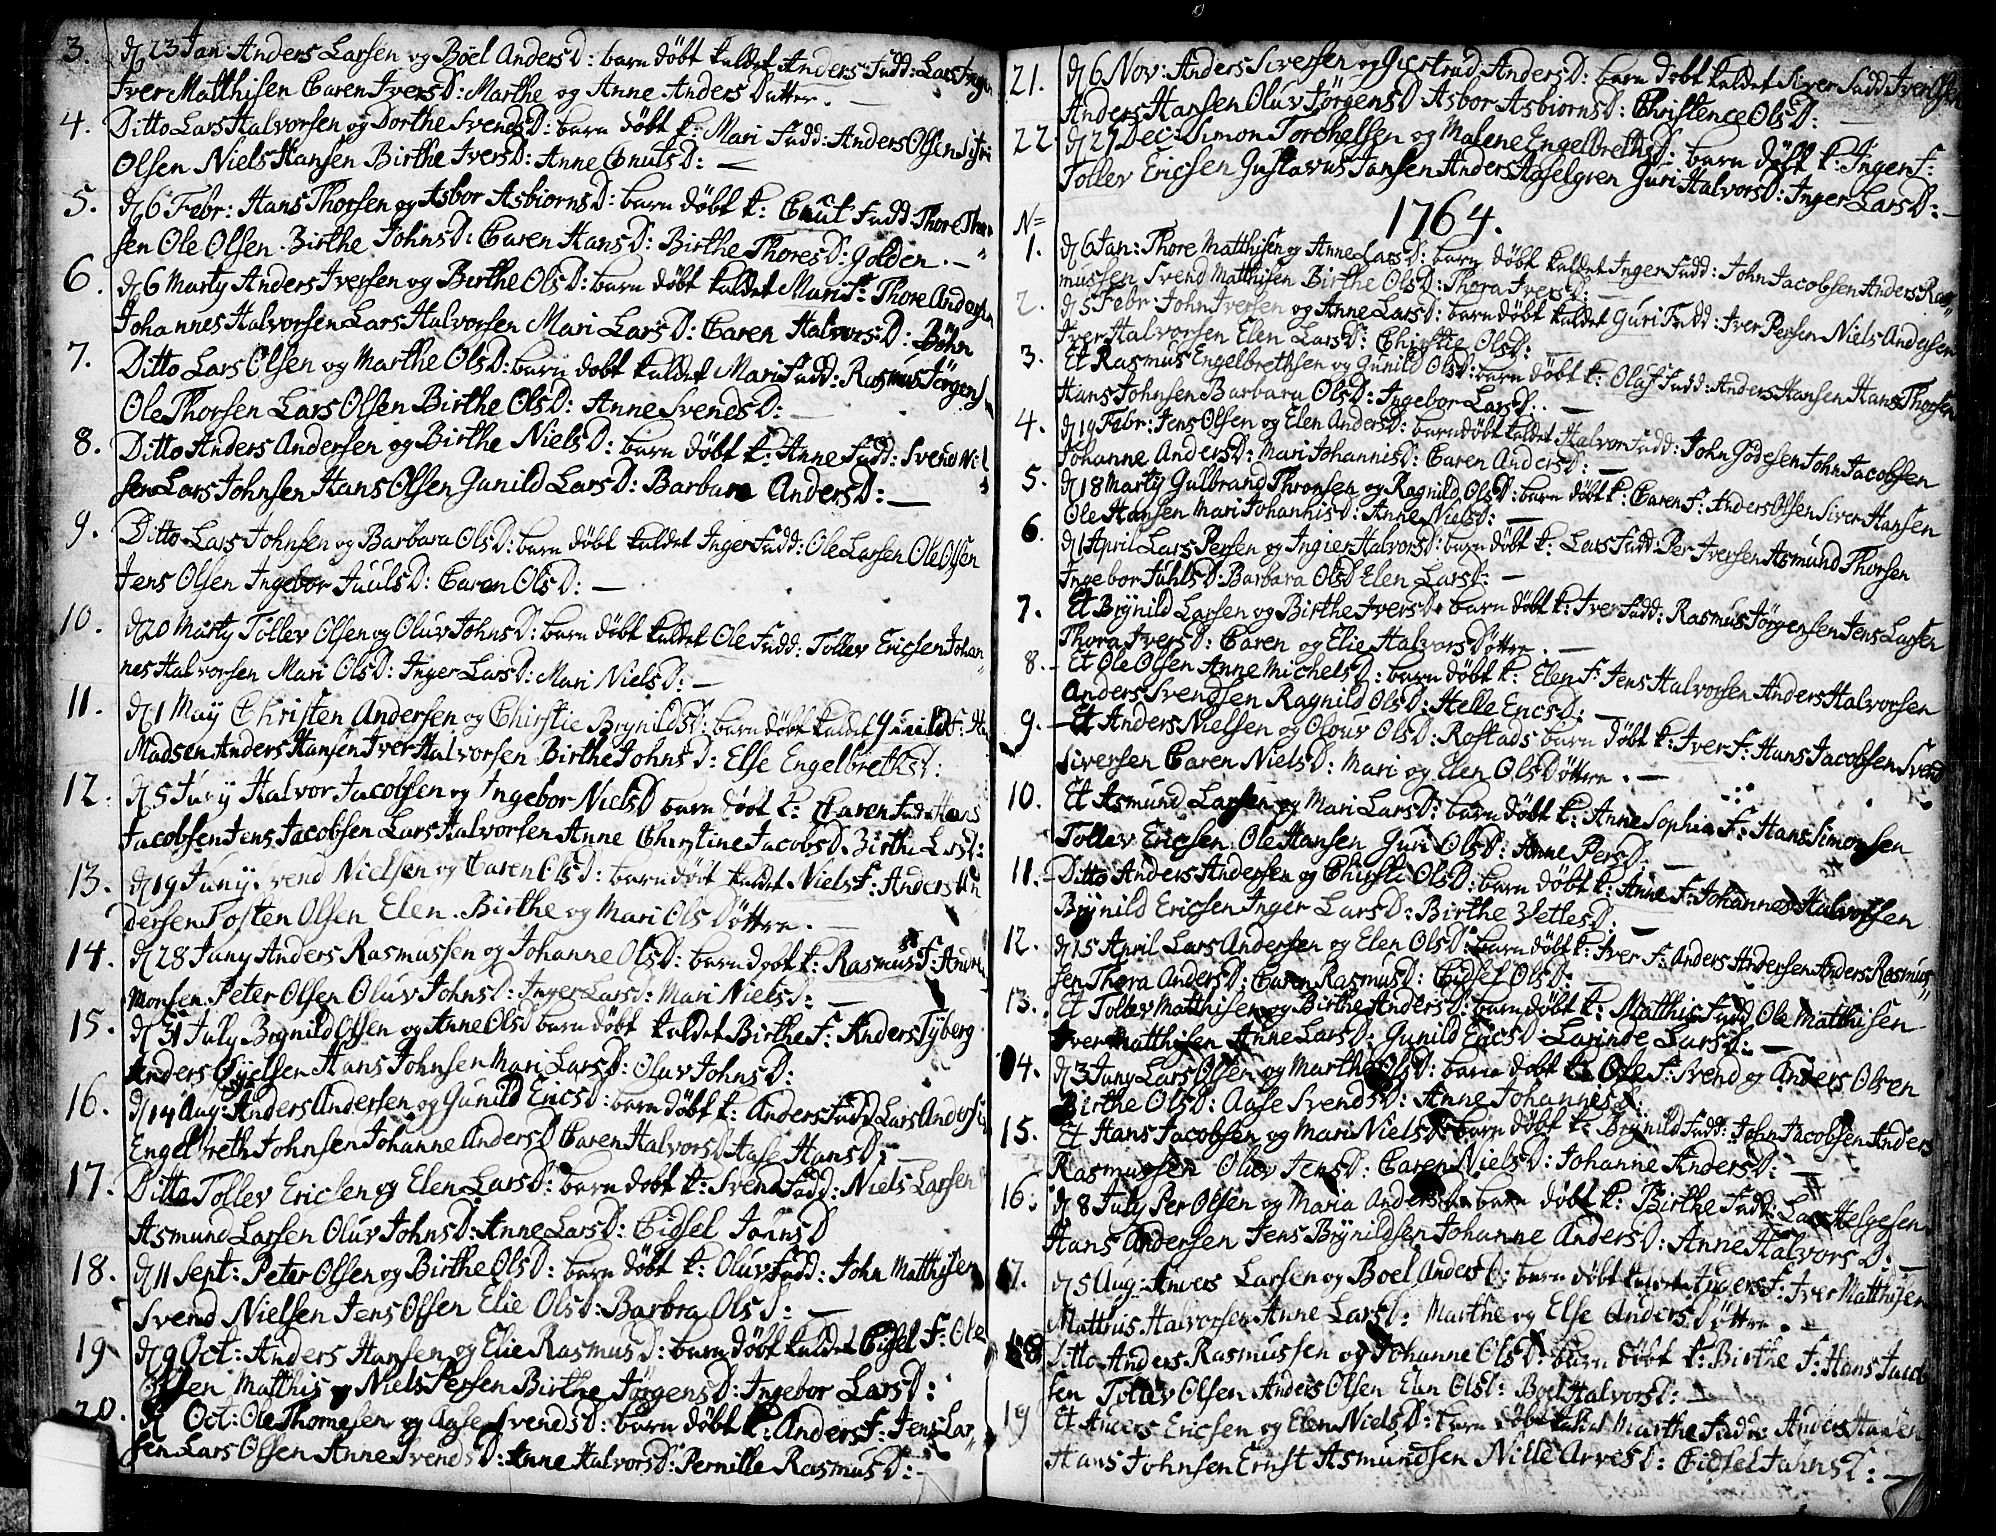 3. d 23 Jan: Anders Larsen og Böel AndersD: barn döbt kaldet Anders Fadd: Lars Inge
Iver Matthisen Caren IversD: Marthe og Anne Anders Dattre. —
4. Ditto Lars Halvorsen og Dorthe SvendsD: barn döbt k: Mari Fadd: Anders Olsen
Olsen Niels Hansen Birthe IversD: Anne CnutsD: —
5. d 6 Febr: Hans Thorsen og Asbor AsbiornsD: barn döbt k: Cnut Fadd: Thore Thor
sen Ole Olsen Birthe JohnsD: Caren HansD: Birthe ThoresD: Golden. —
6. d 6 Marty Anders Iversen og Birthe OlsD: barn döbt kaldet Mari F: Thore Andersen
Johannes Halvorsen Lars Halvorsen Mari LarsD: Caren HalvorsD: Böhn
7. Ditto Lars Olsen og Marthe OlsD: barn döbt kaldet Mari Fadd: Rasmus Jörgens
Ole Thorsen Lars Olsen Birthe OlsD: Anne SvendsD: —
8. Ditto Anders Andersen og Birthe NielsD: barn döbt k: Anne Fadd: Svend Niel
sen Lars Johnsen Hans Olsen Gunild LarsD: Barbara AndersD: —
9. Ditto Lars Johnsen og Barbara OlsD: barn döbt kaldet Inger Fadd: Ole Larsen Ole Olsen
Jens Olsen Ingebor JuulsD: Caren OlsD: —
10. d 20 Marty Tollev Olsen og Oluv JohnsD: barn döbt kaldet Ole Fadd: Tollev Ericsen Johan
nes Halvorsen Mari OlsD: Inger LarsD: Mari NielsD: —
11. d 1 Maÿ Christen Andersen og Chirstie BrynildsD: barn döbt kaldet Gunild F:
Madsen Anders Hansen Iver Halvorsen Birthe JohnsD: Else EngelbrethsD:
12. d 5 Juny Halvor Jacobsen og Ingebor NielsD barn döbt k: Caren Fad: Hans
Jacobsen Jens Jacobsen Lars Halvorsen Anne Christine JacobsD. Birthe LarsD:
13. d 19 Juny Svend Nielsen og Caren OlsD: barn döbt kaldet Niels F: Anders An
dersen Tosten Olsen Elen. Birthe og Mari Ols Döttre. —
14. d 28 Juny Anders Rasmussen og Johanne OlsD: barn döbt k: Rasmus F:
monsen Peter Olsen Oluv JohnsD: Inger LarsD: Mari NielsD: —
15. d 31 July Brynild Olsen og Anne OlsD barn döbt kaldet Birthe F: Anders Tyberg
Anders Gjelsen Hans Johnsen Mari LarsD: Oluv JohnsD:
16. d 14 Aug: Anders Andersen og Gunild EricsD: barn döbt k: Anders Fadd Lars Andersen
Engelbreth Johnsen Johanne AndersD Caren HalvorsD Aase HansD: —
17. Ditto Tollev Ericsen og Elen LarsD: barn döbt k: Svend Fadd: Niels Larsen
Asmund Larsen Oluv JohnsD: Anne LarsD: Cidsel JohnsD
18. d 11 Sept: Peter Olsen og Birthe OlsD: barn döbt k: Oluv Fadd: John Matthisen
Svend Nielsen Jens Olsen Elie OlsD: Barbra OlsD: —
19 d 9 Oct: Anders Hansen og Elie RasmusD: barn döbt kaldet Cidsel F: Ole
Olsen Matthis og Niels Persen Birthe JörgensD: Ingebor LarsD:
20. d Oct: Ole Thomesen og Aase SvendsD: barn döbt k: Anders F: Jens Lar
sen Lars Olsen Anne SvendsD: Anne HalvorsD: Pernille RasmusD: —
21. d 6 Nov: Anders Siversen og Giertrud AndersD: barn döbt kaldet Siver Fadd Iver Olsen
Anders Hansen Oluv JörgensD Asbor AsbiornsD: Christence OlsD: —
22. d 27 Dec: Simon Torchelsen og Malene EngelbrethsD: barn döbt k: Inger F:
Tollev Ericsen Gustavus Jansen Anders Haselgren Guri HalvorsD: Inger LarsD: —
N= 1764.
1. d 6 Jan: Thore Matthisen og Anne LarsD: barn döbt kaldet Inger Fadd: John Jacobsen Anders Ras
mussen Svend Matthisen Birthe OlsD: Thora IversD: —
2. d 5 Febr: John Iversen og Anne LarsD: barn döbt kaldet Guri Fadd: Iver Persen Niels Andersen
Iver Halvorsen Elen LarsD: Chirstie OlsD: —
3. Et Rasmus Engelbrethsen og Gunild OlsD: barn döbt k: Olaf Fadd: Anders Hansen Hans Thorsen
Hans Johnsen Barbara OlsD: Ingebor LarsD: —
4. d 19 Febr: Jens Olsen og Elen AndersD: barn döbt kaldet Halvor Fadd: John Gödesen John Jacobsen
Johanne AndersD: Mari JohannisD: Caren AndersD: —
5. d 18 Marty Gulbrand Thronsen og Ragnild OlsD: barn döbt k: Caren F: Anders Olsen Siver Hansen
Ole Hansen Mari JohannisD: Anne NielsD: —
6. d 1 April Lars Persen og Ingier HalvorsD: barn döbt k: Lars Fadd: Per Iversen Asmund Thorsen
Ingebor JuhlsD: Barbara OlsD Elen LarsD: —
7. Et Brynild Larsen og Birthe IversD: barn döbt k: Iver Fadd: Rasmus Jörgensen Jens Larsen
Thora IversD: Caren og Elie Halvors Döttre. —
8. - Et Ole Olsen Anne MichelsD: barn döbt k: Elen F: Jens Halvorsen Anders Halvorsen
Anders Svendsen Ragnild OlsD: Helle EricsD: —
9. - Et Anders Nielsen og Olouv OlsD: Rostads barn döbt k: Iver F: Hans Jacobsen Svend
Siversen Caren NielsD: Mari og Elen Ols Döttre. —
10. Et Asmund Larsen og Mari LarsD: barn döbt k: Anne Sophia F: Hans Simonsen
Tollev Ericsen Ole Hansen Guri OlsD: Anne PersD: —
11. - Ditto Anders Andersen og Chirsti OlsD: barn döbt k: Anne F: Johannes Halvorsen
Brynild Ericsen Inger LarsD: Birthe ZetlesD: —
12. d 15 April Lars Andersen og Elen OlsD: barn döbt k: Iver F: Anders Andersen Anders Rasmus
sen Thora AndersD: Caren RasmusD: Cidsel OlsD: —
13. Et Tollev Matthisen og Birthe AndersD: barn döbt k: Matthis Fadd Ole Matthisen
Iver Matthisen Anne LarsD: Gunild EricsD Larinde LarsD: —
14. d 3 Juny Lars Olsen og Marthe OlsD: barn döbt k: Ole F: Svend og Anders Olsen
Birthe OlsD: Aase SvendsD: Anne JohannesD:
15. Et Hans Jacobsen og Mari NielsD: barn döbt k: Brynild Fadd: John Jacobsen Anders
Rasmussen Oluv JensD: Caren NielsD: Johanne AndersD: —
16. d 8 July Per Olsen og Maria AndersD: barn döbt k: Birthe Fadd: Lars Helgesen
Hans Andersen Jens Brynildsen Johanne AndersD: Anne HalvorsD: —
17. d 5 Aug: Anders Larsen og Boel AndersD: barn döbt kaldet Anders F: Iver Matthisen
Matthis Halvorsen Anne LarsD: Marthe og Else Anders Döttre. —
18 Ditto Anders Rasmussen og Johanne OlsD: barn döbt k: Birthe F: Hans Jacob
sen Tollev Olsen Anders Olsen Elen OlsD: Boel HalvorsD: —
19 Et Anders Ericsen og Elen NielsD: barn döbt kaldet Marthe Fadd: Anders Hansen
Hans Johnsen Ernst Asmundsen Nille ArvesD: Cidsel JahnsD: —